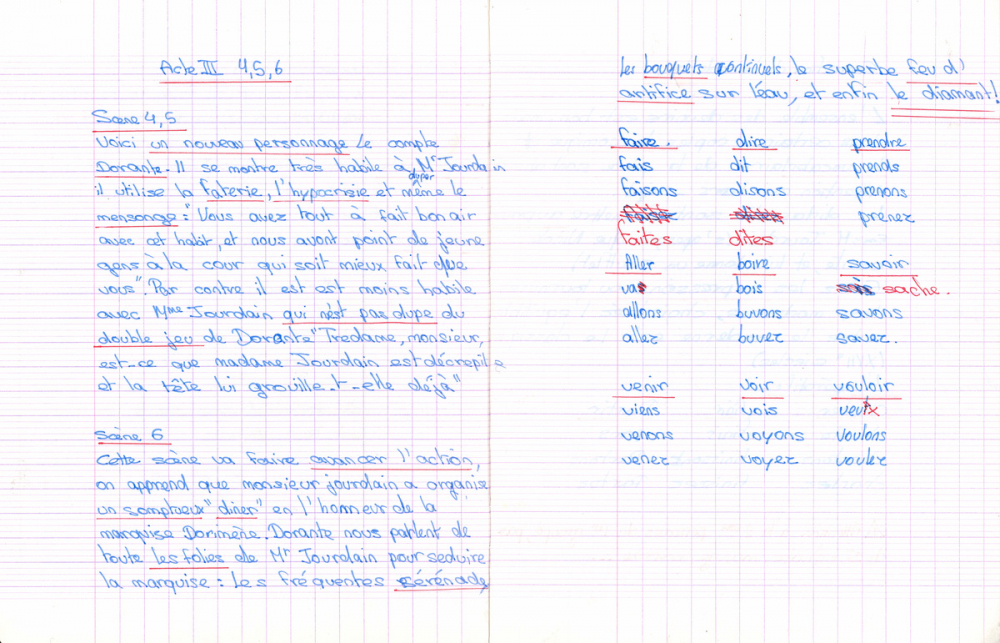 Acte III 4,5,6
Scène 4,5
Voici un nouveau personnage le compte
Dorante. Il se montre très habile à duper Mr Jourdain
il utilise la flaterie, l'hypocrisie et même le
mensonge: "Vous avez tout à fait bon air
avec cet habit, et nous avont point de jeune
gens à la cour qui soit mieux fait que
vous". Par contre il est est moins habile
avec Mme Jourdain qui n'est pas dupe du
double jeu de Dorante "Tredame, monsieur,
est-ce que madame Jourdain est décrepite
et la tête lui grouille-t-elle déjà"
Scène 6
Cette scène va faire avancer l'action,
on apprend que monsieur jourdain a organise
un somptueux "diner" en l'honneur de la
marquise Dorimène. Dorante nous parlent de
toute les folies de Mr Jourdain pour seduire
la marquise: Les fréquentes sérénade,
Les bouquets continuels, le superbe feu d'
artifice sur l'eau, et enfin le diamant!
faire. dire prendre
fais dit prends
faisons disons prenons
prenez
faites dites
Aller boire savoir
vas bois sache.
allons buvons savons
allez buvez savez.
venir voir vouloir
viens vois veux
venons voyons voulons
venez voyez voulez